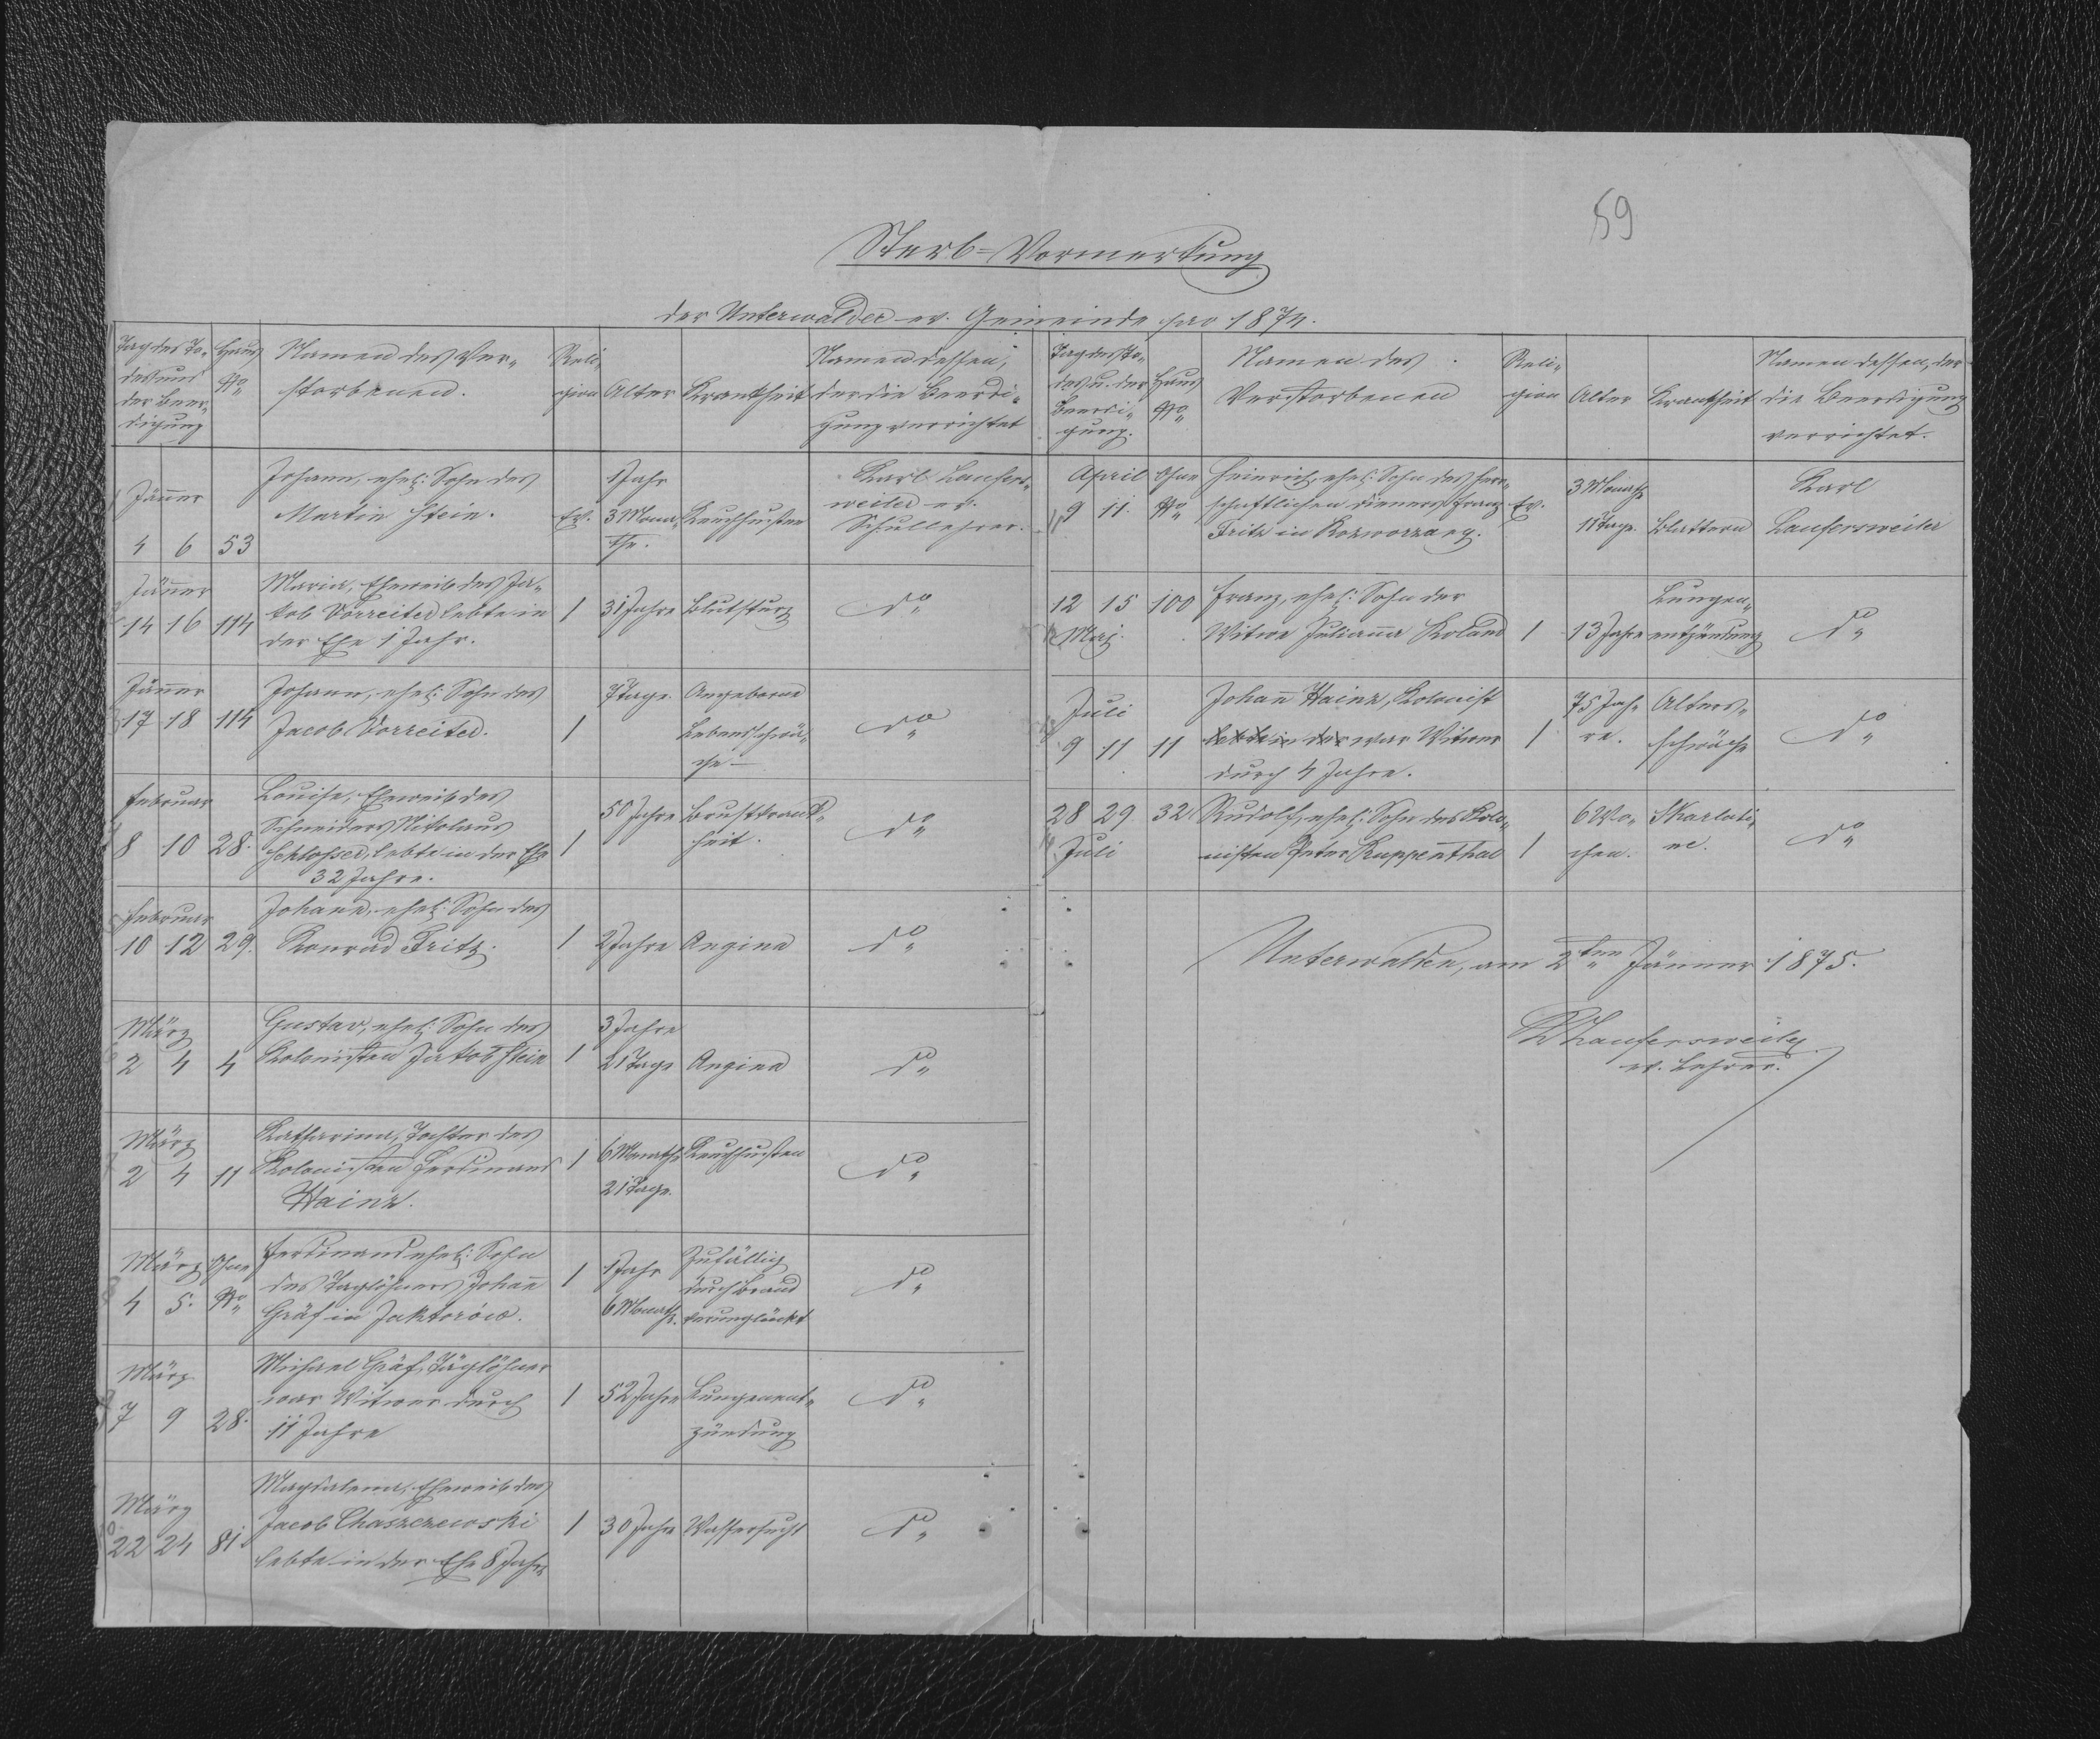 59
Sterb=Vormerkung
der Unterwalder ev. Gemeinde pro 1874.
Tag des To-
des und
der Beer-
digung
Haus
No
Namen des Ver-
storbenen.
Reli-
gion
Alter
Krankheit
Namen dessen,
der die Beerdi-
gung verrichtet
Jänner
4 6 53
Johann, ehel: Sohn des
Martin Stein.
Ev.
1 Jahr
3 Mona-
the.
Keuchhusten
Karl Laufers-
weiler ev.
Schullehrer.
Jänner
14 16 114
Maria, Eheweib des Ja-
kob Vorreiter lebte in
der Ehe 1 Jahr.
1
31 Jahre
Blutsturz
do
Jänner
17 18 114
Johann, ehel: Sohn des
Jacob Vorreiter.
1
7 Tage
Angeborne
Lebensschwä-
che
do
Februar
8 10 28.
Louise, Eheweib des
Schneiders Nikolaus
Schlosser, lebte in der Ehe
32 Jahre.
1
50 Jahre
Brustkrank-
heit.
do
Februar
10 12 29.
Johann, ehel: Sohn des
Konrad Fritz.
1
2 Jahre
Angina
do
März
2 4 4
Gustav, ehel: Sohn des
Kolonisten Jakob Stein
1
3 Jahre
21 Tage
Angina
do
März
2 4 11
Katharina, Tochter des
Kolonisten Ferdinand
Hainz.
1
6 Monathe
21 Tage.
Keuchhusten
do
März
4 5.
Ohne
No
Ferdinand ehel: Sohn
des Taglöhners Johañ
Gräf in Jaktorów.
1
1 Jahr
6 Monathe.
Zufällig
durch Brand
verunglückt
do
März
7 9 28.
Michael Gräf, Taglöhner
war Witwer durch
11 Jahre
1
52 Jahre
Lungenent-
zündung
do
März
22 24 81
Magdalena, Eheweib des
Jacob Chaszczewski
lebte in der Ehe 8 Jahre
1
30 Jahre
Wassersucht
do
Tag des To-
des u. der
Beerdi-
gung.
Haus
No
Namen des
Verstorbenen
Reli-
gion
Alter
Krankheit
Namen dessen, der
die Beerdigung
verrichtet.
April
9 11.
Ohne
No
Heinrich, ehel: Sohn des herr-
schaftlichen Dieners Franz
Fritz in
Ev.
3 Monathe
11 Tage.
Blattern
Karl
Laufersweiler
12 15 100
Maj.
Franz, ehel: Sohn der
Witwe Juliaña Roland
1
13 Jahre
Lungen-
entzündung
do
Juli
9 11 11
Johañ Hainz, Kolonist
lebte in der war Witwer
durch 4 Jahre.
1
75 Jah-
re.
Alters-
schwäche
do
28 29 32
Juli
Rudolf, ehel: Sohn des Kolo-
nisten Peter Ruppenthal
1
6 Wo-
chen.
Skarlati-
ne.
do
Unterwalden, am 2ten Jänner 1875.
Laufersweiler
ev. Lehrer.